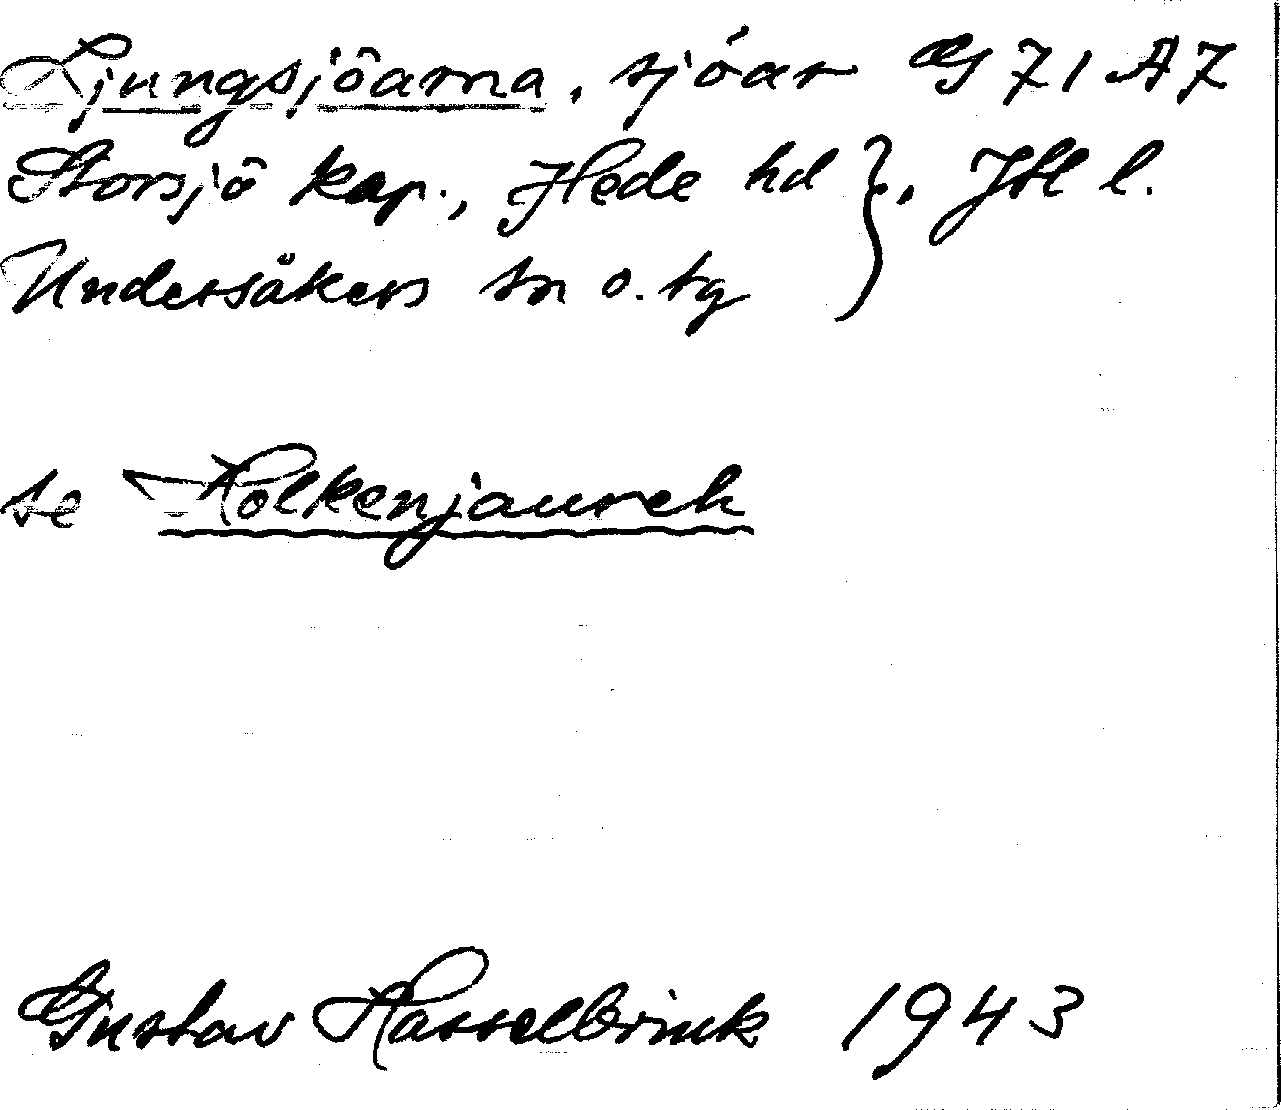 Ljungsjöarna, sjöar G 71 A 7
Storsjö kap., Hede hd }, Jtl l.
Undersåkers sn o. tg
se Holkenjaureh
Gustav Hasselbrink 1943